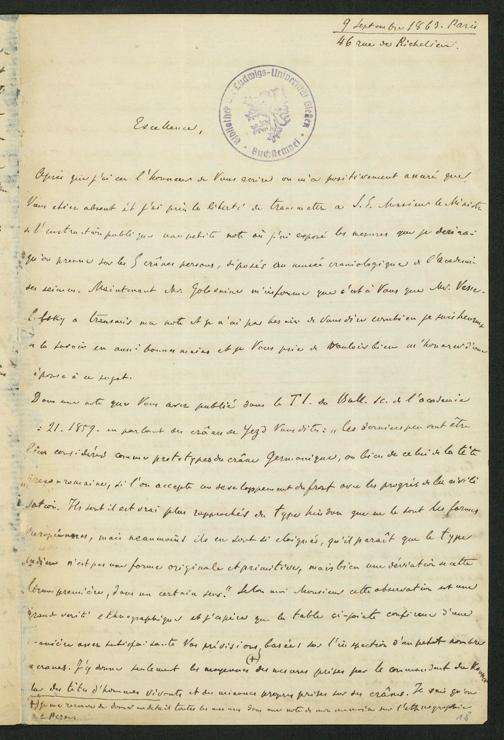 9 Septembre 1863. Paris
46 rue de Richelieu.
Bibliothek d. Ludwigs-Universität Gießen
Buchstempel
Excellence,
Après que j'ai eu l'honneur de Vous écrire on m'a positivement assuré que
Vous étiez absent et j'ai pris la liberté de transmettre à S. E. Monsieur le Ministre
de l'instruction publique une petite note où j'ai exposé les mesures que je désirai
qu'on prenne sur les 5 crânes persans, déposés au musée craniologique de l'académie
des sciences. Maintenant Mr. m'informe que c'est à Vous que Mr. Vesse-
a transmis ma note et je n'ai pas besoin de Vous dire combien je suis heureux
de la savoir en aussi bonnes mains et je Vous prie de vouloir bien m'honorer d'une
réponse à ce sujet.
Dans une note que Vous avez publié dans le T I. du Bull. sc. de l'académie
: 21. 1859. en parlant des crânes de Yezd Vous dites: "les derniers peuvent être
bien considérés comme prototypes du crâne Germanique, ou bien de celui de la tête
greco-romaine, si l'on accepte un développement du front avec les progrès de la civili-
sation. Ils sont il est vrai plus rapprochés du type hindou que ne le sont les formes
européennes, mais néanmoins ils en sont si éloignés, qu'il paraît que le type
indien n'est pas une forme originale et primitive, mais bien une déviation de cette
forme première, dans un certain sens." Selon moi Monsieur cette observation est une
grande vérité ethnographique et j'espère que la table ci-jointe confirme d'une
manière assez satisfaisante Vos prévisions, basées sur l'inspection d'un petit nombre
de crânes. J'y donne seulement les moyennes (+) des mesures prises par le commandant
sur des têtes d'hommes vivants et des miennes propres prises sur des crânes. Je sais qu'on
+) je me réserve de donner en détail toutes les mesures dans une note de mon mémoire sur l'ethnographie
de la Perse.
18